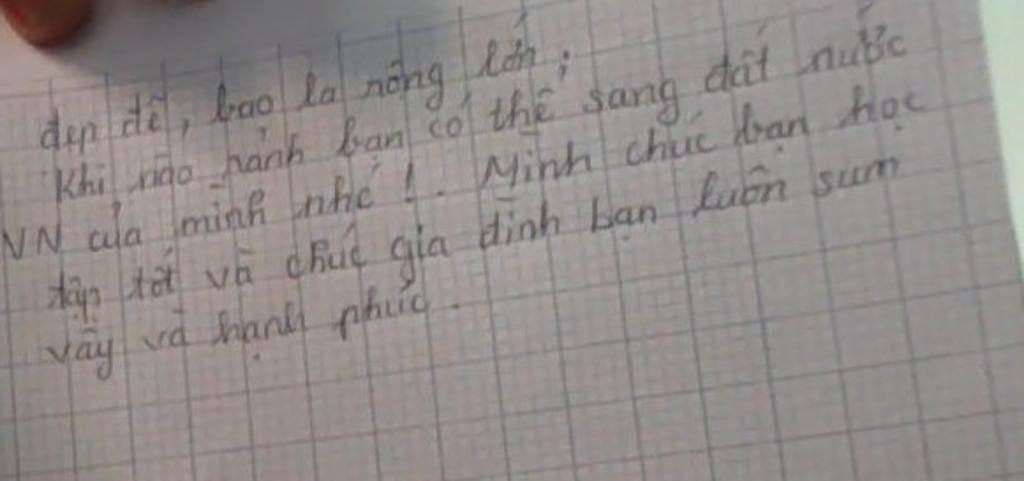 đẹp đẽ, bao la rộng lớn;
Khi nào rảnh bạn có thể sang đất nước
VN của mình nhé!. Mình chúc bạn học
tập tốt và chúc gia đình bạn luôn sum
vầy và hạnh phúc.